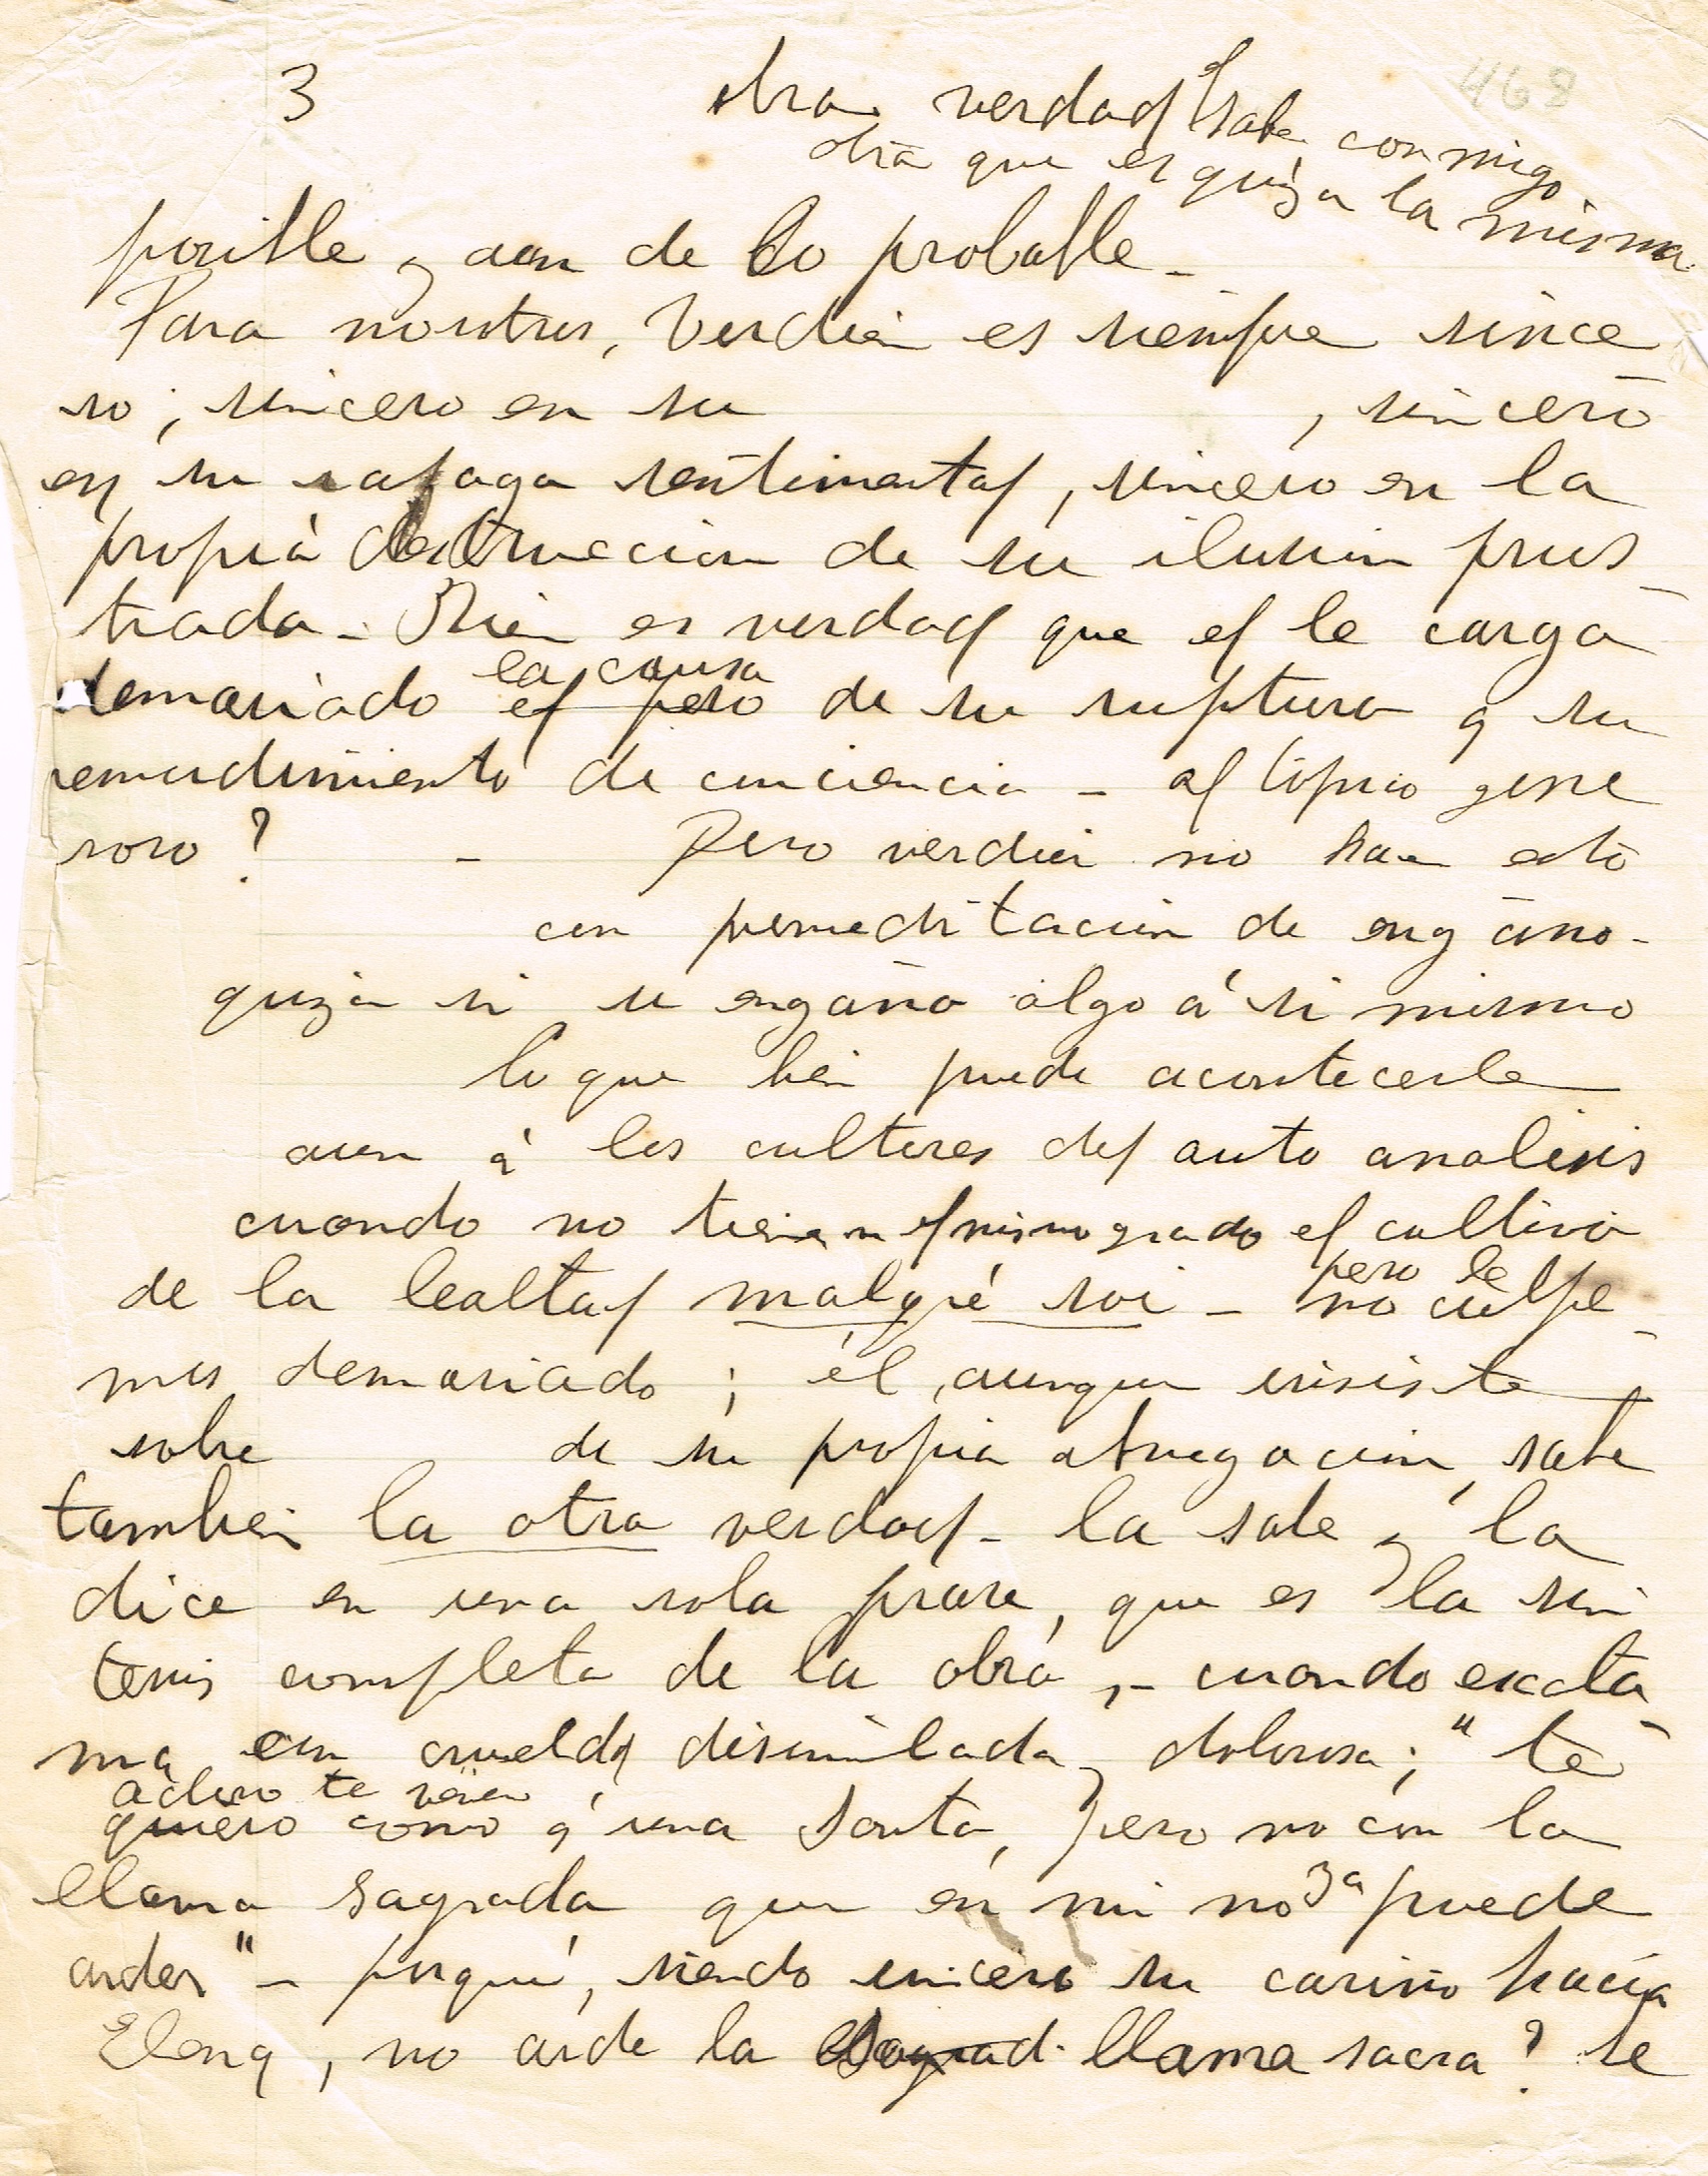 3
468
otra verdad Esta conmigo
otra que es quiza la misma
posible y aun de lo probable_
Para nosotros, Verdier es siempre since
ro; sincero en su , sincero
en su rafaga sentimental, sincero en la
propia destruccion de su ilusion frus_
trada_ Bien es verdad que el le carga
la causa
demasiado el peso de su ruptura y su
remordimiento de conciencia _ al topico gene
roso? _ Pero verdier no hace esto
con premeditacion de engaño_
quiza si se engaña algo á si mismo
lo que bien puede acontecerle
aun á los cultores del auto analisis
cuando no tienen el mismo grado el cultivo
de la lealtad malgré soi _ no culpe_
pero le
mos demasiado; él, aunque insiste
sobre de su propia abnegacion, sabe
tambien la otra verdad_ la sabe y la
dice en una sola frase, que es la sin
tesis completa de la obra,_ cuando exacta
ma con crueldad disimulada y dolorosa; "te
adoro te venero
quiero como á una Santa, pero no con la
llama sagrada que en mi no ya puede
arder" _ porqué, siendo sincero su cariño hacia
Elena, no arde la sagrad llama sacra? se